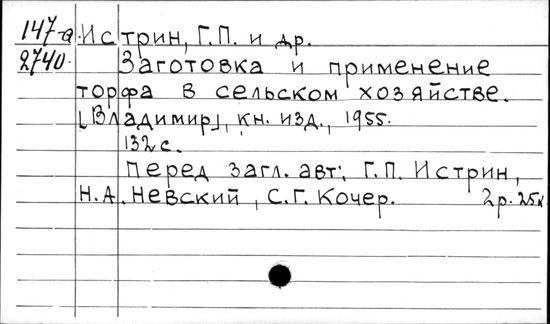 147-а Истрин, Г.П. и др.
2740. Заготовка и применение
торфа в сельском хозяйстве.
[Владимир], кн. изд., 1955.
132 с.
Перед загл. авт: Г.П. Истрин,
Н.А. Невский, С.Г. Кочер. 2р. 25к